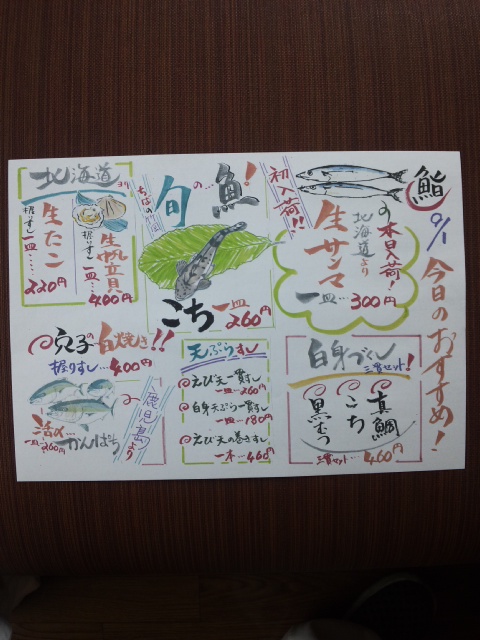 鮨
9/1
今日のおすすめ!
初入荷!!
本日入荷!
北海道より
生サンマ
一皿…300円
旬の…魚!
こち
一皿…260円
北海道より
生帆立貝
握りずし
一皿…400円
生たこ
握りずし
一皿…220円
白身づくし
三貫セット!
真鯛
こち
黒むつ
三貫セット…460円
天ぷらずし
えび天一貫ずし
一皿…260円
白身天ぷら一貫ずし
一皿…180円
えび天の巻きずし
一本…460円
穴子の白焼き!!
握りずし…400円
鹿児島より
活〆
かんぱち
一皿…260円